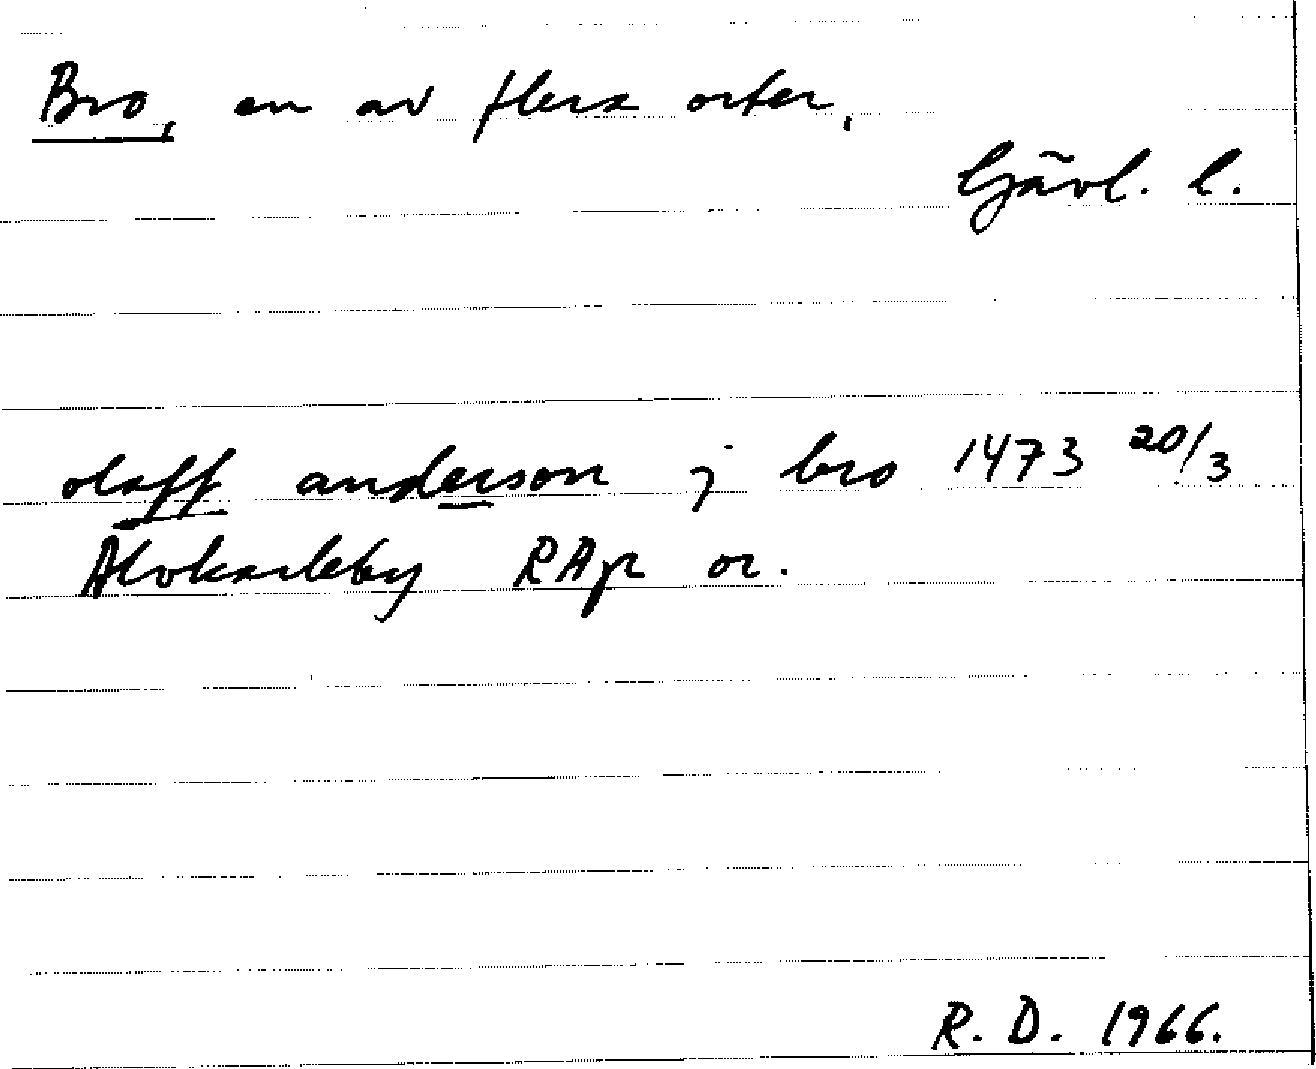 Bro, en av flera orter,
Gävl. l.
olaff anderson j bro 1473 20/3
Älvkarleby RAp or.
R. D. 1966.